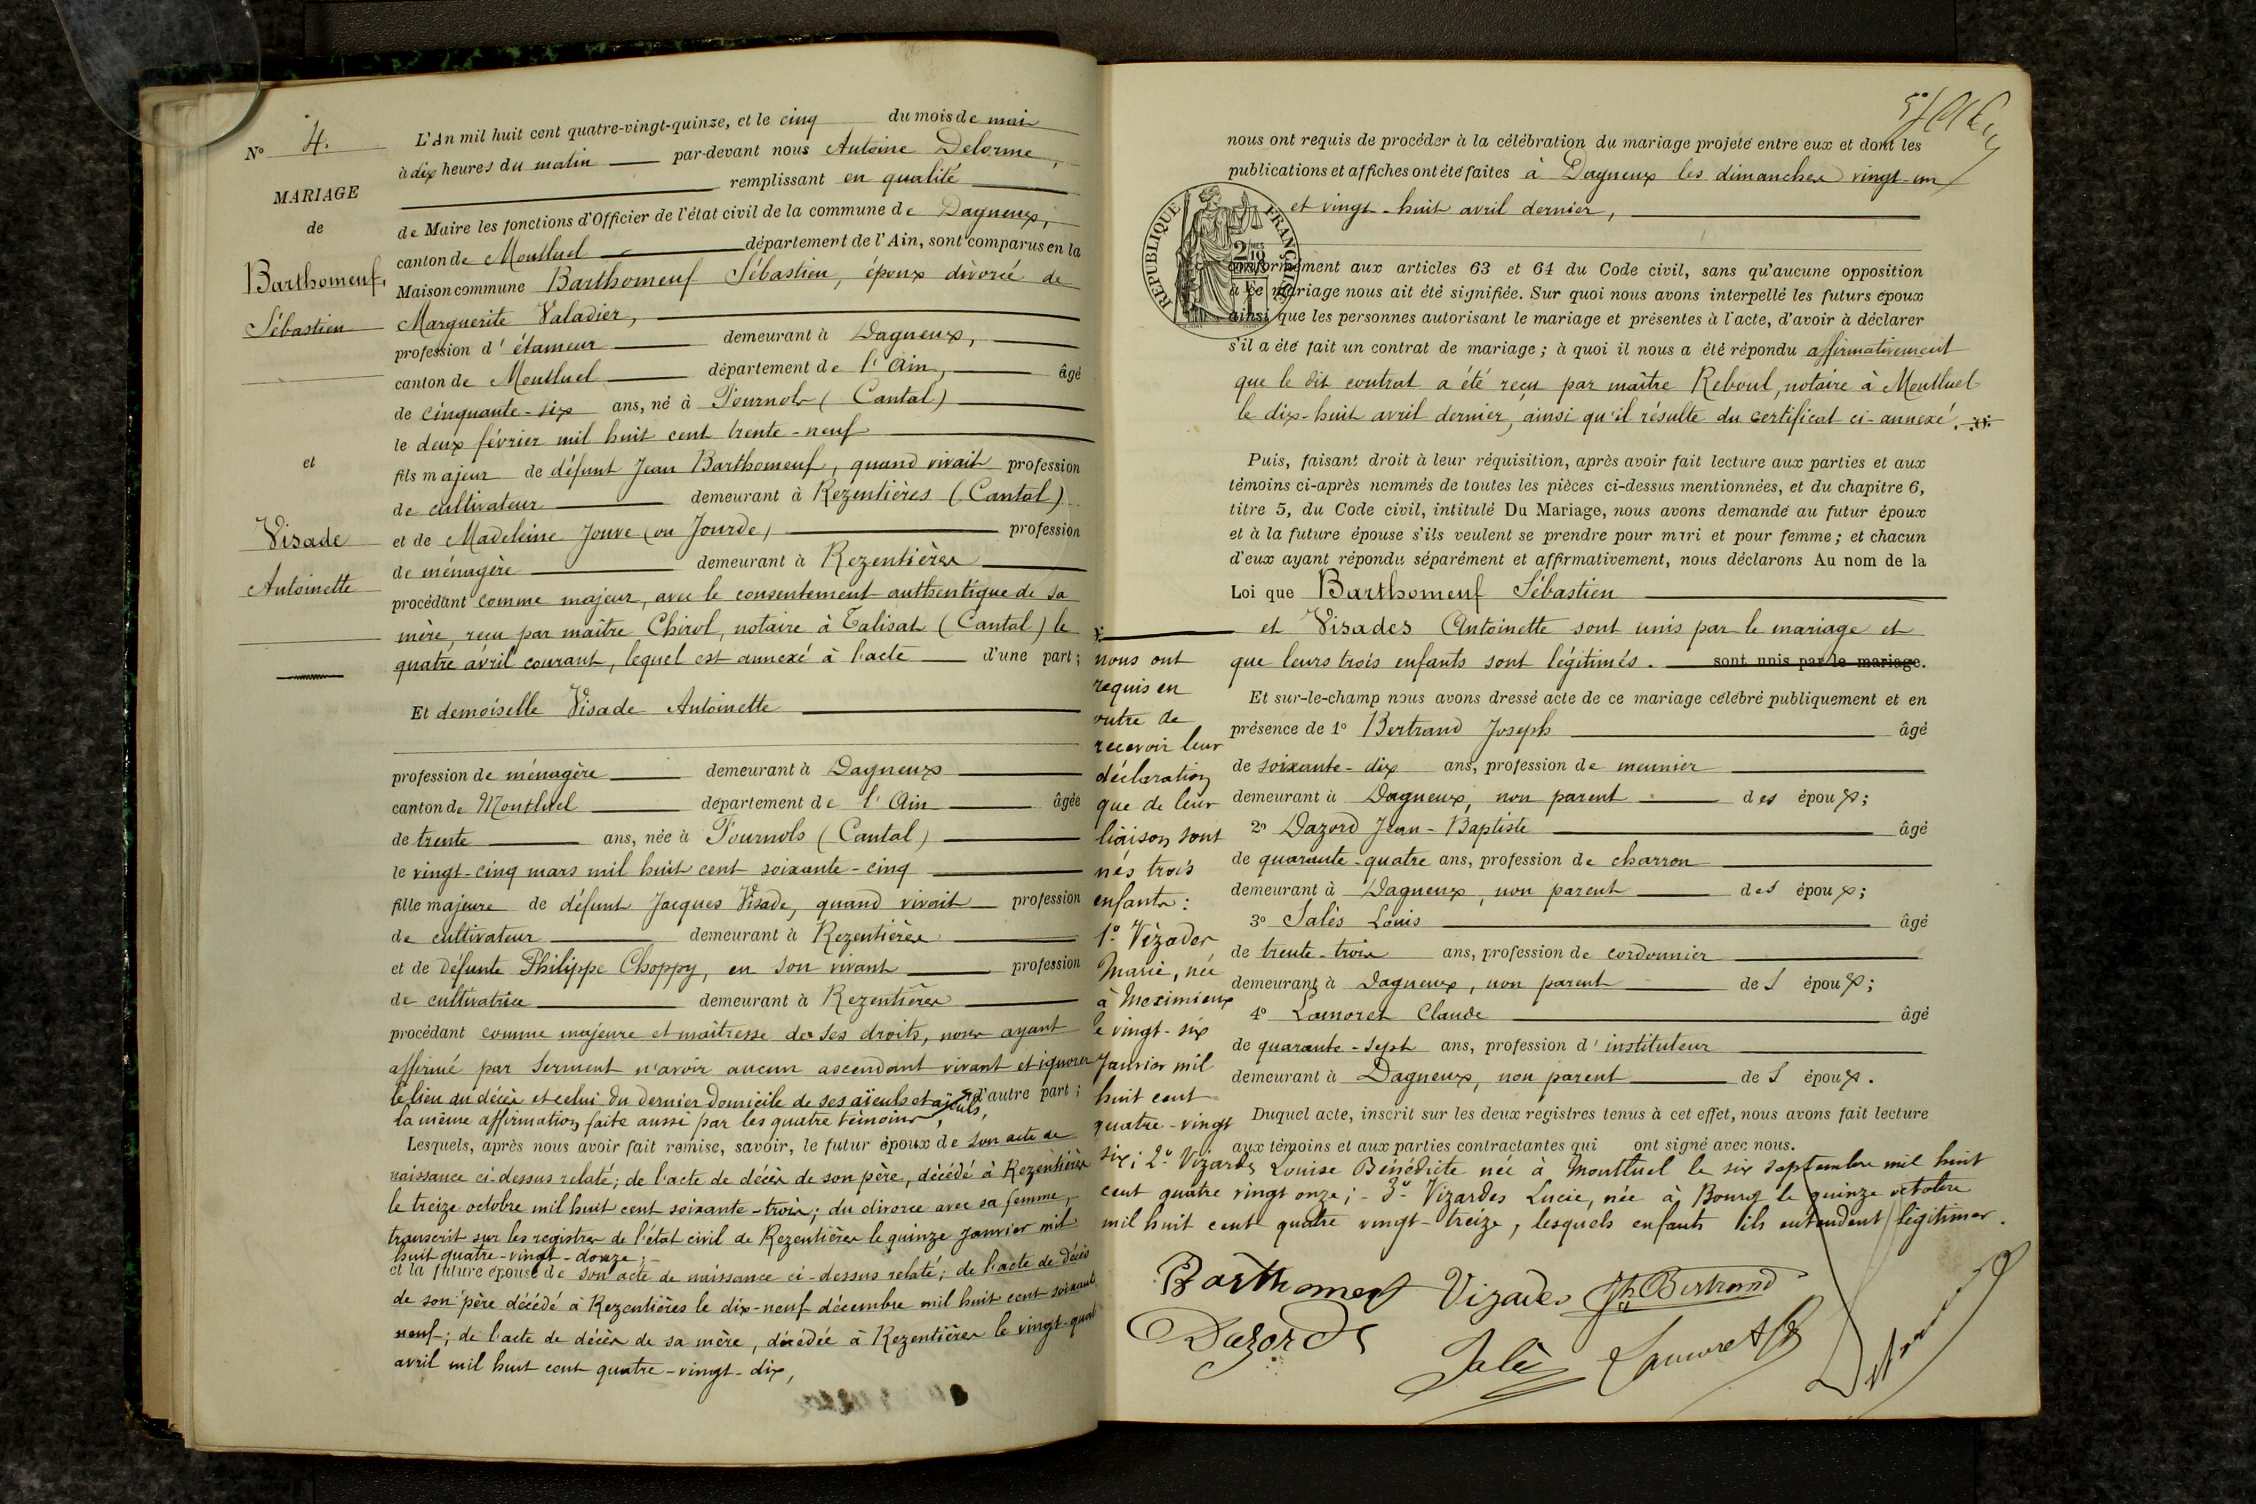 N° 4.
MARIAGE
de
Barthomeuf,
Sébastien
et
Visade
Antoinette
L'An mil huit cent quatre-vingt-quinze, et le cinq du mois de mai
à dix heures du matin par-devant nous Antoine Delorme,
remplissant en qualité
de Maire les fonctions d'Officier de l'état civil de la commune de Dagneux,
canton de Montluel département de l'Ain, sont comparus en la
Maison commune Barthomeuf Sébastien, époux divorcé de
Marguerite Valadier,
profession d'étameur demeurant à Dagneux,
canton de Montluel département de l'Ain, âgé
de cinquante-six ans, né à Tournols (Cantal)
le deux février mil huit cent trente-neuf
fils majeur de défunt Jean Barthomeuf, quand vivait profession
de cultivateur demeurant à Rezentières (Cantal)
et de Madeleine Jouve (ou Jourde) profession
de ménagère demeurant à Rezentières
procédant comme majeur, avec le consentement authentique de sa
mère, reçu par maître Chirol, notaire à Talisat (Cantal) le
quatre avril courant, lequel est annexé à l'acte d'une part;
Et demoiselle Visade Antoinette
profession de ménagère demeurant à Dagneux
canton de Montluel département de l'Ain âgée
de trente ans, née à Tournols (Cantal)
le vingt-cinq mars mil huit cent soixante-cinq
fille majeure de défunt Jacques Visade, quand vivait profession
de cultivateur demeurant à Rezentières
et de défunte Philippe Choppy, en son vivant profession
de cultivatrice demeurant à Rezentières
procédant comme majeure et maîtresse de ses droits, nous ayant
affirmé par serment n'avoir aucun ascendant vivant et ignorer
le lieu du décès et celui du dernier domicile de ses aïeuls et aïeuls, d'autre part;
la même affirmation faite aussi par les quatre témoins,
Lesquels, après nous avoir fait remise, savoir, le futur époux de son acte de
naissance ci-dessus relaté; de l'acte de décès de son père, décédé à Rezentières
le treize octobre mil huit cent soixante-trois; du divorce avec sa femme,
transcrit sur les registres de l'état civil de Rezentières le quinze janvier mil
huit quatre-vingt-douze;
et la future épouse de son acte de naissance ci-dessus relaté; de l'acte de décès
de son père décédé à Rezentières le dix-neuf décembre mil huit cent soixante
neuf; de l'acte de décès de sa mère, décédée à Rezentières le vingt-quat
avril mil huit cent quatre-vingt-dix,
nous ont requis de procéder à la célébration du mariage projeté entre eux et dont les
publications et affiches ont été faites à Dagneux les dimanches vingt-un
et vingt-huit avril dernier,
RÉPUBLIQUE FRANÇAISE
conformément aux articles 63 et 64 du Code civil, sans qu'aucune opposition
à ce mariage nous ait été signifiée. Sur quoi nous avons interpellé les futurs époux
ainsi que les personnes autorisant le mariage et présentes à l'acte, d'avoir à déclarer
s'il a été fait un contrat de mariage; à quoi il nous a été répondu affirmativement
que le dit contrat a été reçu par maître Reboul, notaire à Montluel
le dix-huit avril dernier, ainsi qu'il résulte du certificat ci-annexé.
Puis, faisant droit à leur réquisition, après avoir fait lecture aux parties et aux
témoins ci-après nommés de toutes les pièces ci-dessus mentionnées, et du chapitre 6,
titre 5, du Code civil, intitulé Du Mariage, nous avons demandé au futur époux
et à la future épouse s'ils veulent se prendre pour mari et pour femme; et chacun
d'eux ayant répondu séparément et affirmativement, nous déclarons Au nom de la
Loi que Barthomeuf Sébastien
et Visades Antoinette sont unis par le mariage et
que leurs trois enfants sont légitimés. sont unis par le mariage.
Et sur-le-champ nous avons dressé acte de ce mariage célébré publiquement et en
présence de 1° Bertrand Joseph âgé
de soixante-dix ans, profession de meunier
demeurant à Dagneux, non parent des époux;
2° Dazord Jean-Baptiste âgé
de quarante-quatre ans, profession de charron
demeurant à Dagneux, non parent des époux;
3° Salès Louis âgé
de trente-trois ans, profession de cordonnier
demeurant à Dagneux, non parent des époux;
4° Lamoret Claude âgé
de quarante-sept ans, profession d'instituteur
demeurant à Dagneux, non parent des époux.
Duquel acte, inscrit sur les deux registres tenus à cet effet, nous avons fait lecture
aux témoins et aux parties contractantes qui ont signé avec nous.
nous ont
requis en
outre de
recevoir leur
déclaration
que de leur
liaison sont
nés trois
enfants:
1° Vizades
Marie, née
à Meximieux
le vingt-six
janvier mil
huit cent
quatre-vingt
six; 2° Vizardes Louise Bénédicte née à Montluel le six septembre mil huit
cent quatre vingt onze; - 3° Vizardes Lucie, née à Bourg le quinze octobre
mil huit cent quatre vingt-treize, lesquels enfants ils entendent légitimer.
Barthomeuf Vizades Jh Bertrand
Dazord Salès Lamoret Cl Delorme